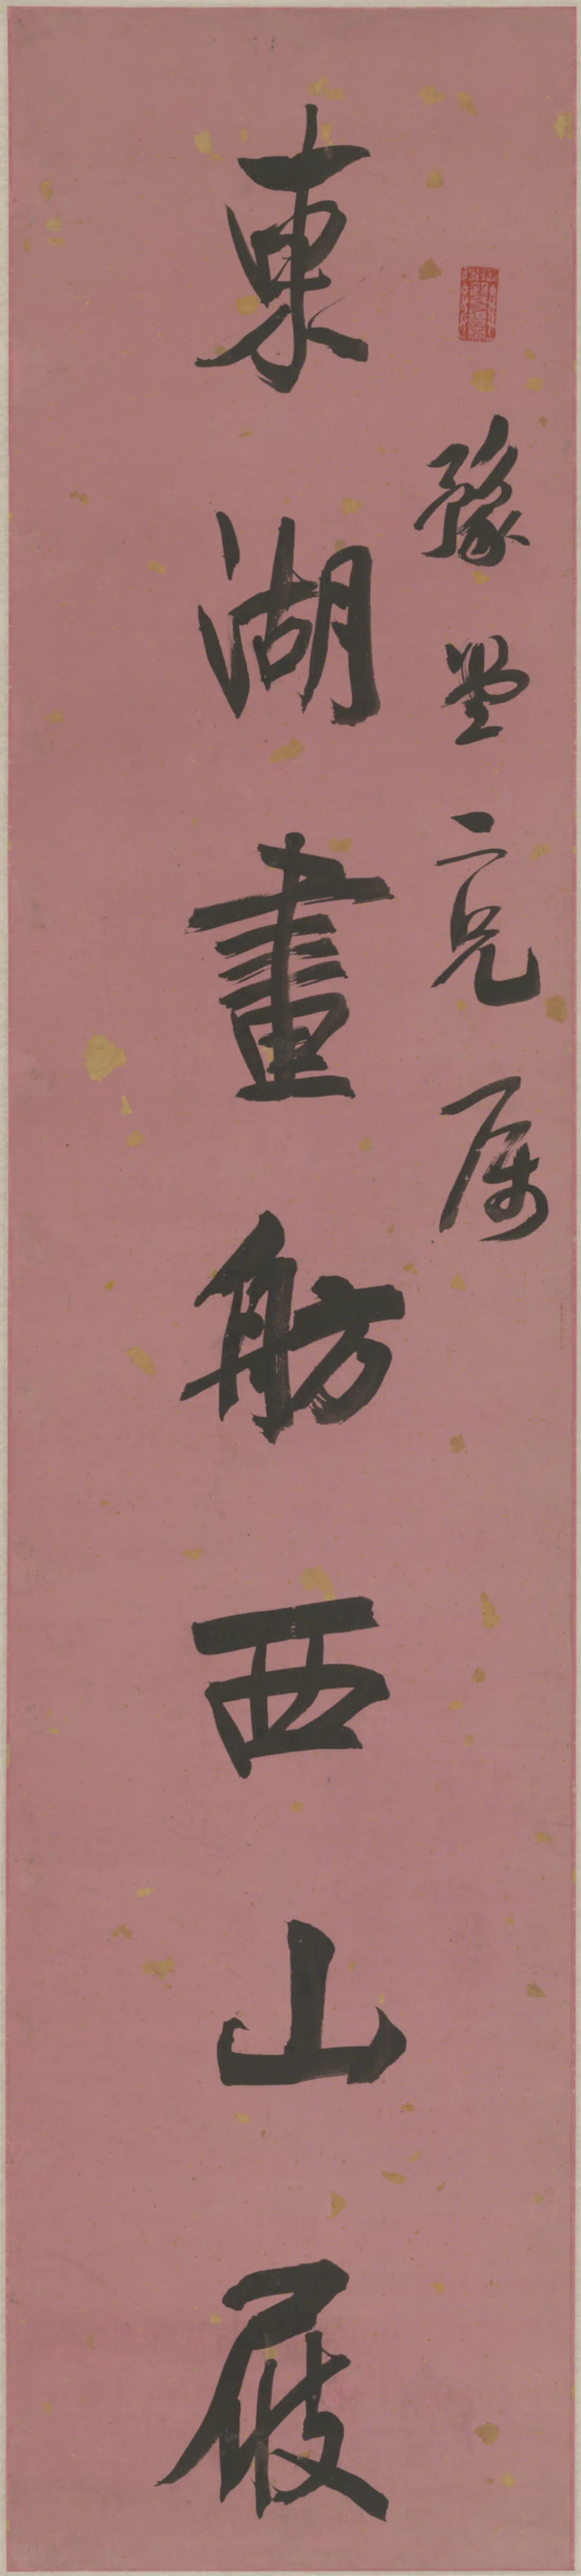 豫堂二兄属
東湖畫舫西山屐